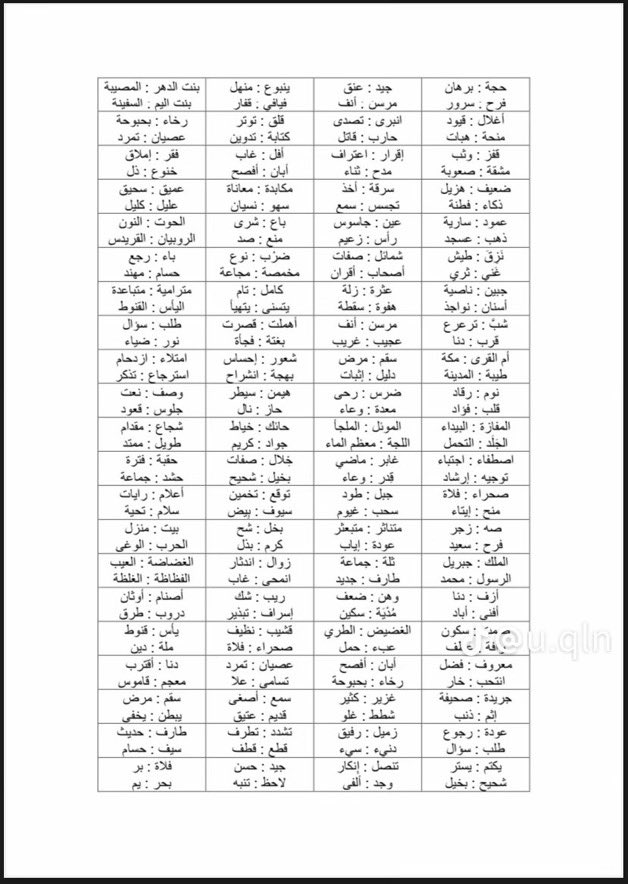 حجة : برهان
فرح : سرور
جيد : عنق
مرسن : أنف
ينبوع : منهل
فيافي : قفار
بنت الدهر : المصيبة
بنت اليم : السفينة
أغلال : قيود
منحة : هبات
انبرى : تصدى
حارب : قاتل
قلق : توتر
كتابة : تدوين
رخاء : بحبوحة
عصيان : تمرد
قفز : وثب
مشقة : صعوبة
إقرار : اعتراف
مدح : ثناء
أفل : غاب
أبان : أفصح
فقر : إملاق
خنوع : ذل
ضعيف : هزيل
ذكاء : فطنة
سرقة : أخذ
تجسس : سمع
مكابدة : معاناة
سهو : نسيان
عميق : سحيق
عليل : كليل
عمود : سارية
ذهب : عسجد
عين : جاسوس
رأس : زعيم
باع : شرى
منع : صد
الحوت : النون
الروبيان : القريدس
نزق : طيش
غني : ثري
شمائل : صفات
أصحاب : أقران
ضرب : نوع
مخمصة : مجاعة
باء : رجع
حسام : مهند
جبين : ناصية
أسنان : نواجذ
عثرة : زلة
هفوة : سقطة
كامل : تام
يتسنى : يتهيأ
مترامية : متباعدة
اليأس : القنوط
شب : ترعرع
قرب : دنا
مرسن : أنف
عجيب : غريب
أهملت : قصرت
بغتة : فجأة
طلب : سؤال
نور : ضياء
أم القرى : مكة
طيبة : المدينة
سقم : مرض
دليل : إثبات
شعور : إحساس
بهجة : انشراح
امتلاء : ازدحام
استرجاع : تذكر
نوم : رقاد
قلب : فؤاد
ضرس : رحى
معدة : وعاء
هيمن : سيطر
حاز : نال
وصف : نعت
جلوس : قعود
المفازة : البيداء
الجَلَد : التحمل
الموئل : الملجأ
اللجة : معظم الماء
حائك : خياط
جواد : كريم
شجاع : مقدام
طويل : ممتد
اصطفاء : اجتباء
توجيه : إرشاد
غابر : ماضي
قدر : وعاء
خلال : صفات
بخيل : شحيح
حقبة : فترة
حشد : جماعة
صحراء : فلاة
منح : إيتاء
جبل : طود
سحب : غيوم
توقع : تخمين
سيوف : بيض
أعلام : رايات
سلام : تحية
صه : زجر
فرح : سعيد
متناثر : متبعثر
عودة : إياب
بخل : شح
كرم : بذل
بيت : منزل
الحرب : الوغى
الملك : جبريل
الرسول : محمد
ثلة : جماعة
طارف : جديد
زوال : اندثار
انمحى : غاب
الغضاضة : العيب
الفظاظة : الغلظة
أزف : دنا
أفنى : أباد
وهن : ضعف
مُدْيَة : سكين
ريب : شك
إسراف : تبذير
أصنام : أوثان
دروب : طرق
سكون
الغضيض : الطري
عبء : حمل
قشيب : نظيف
صحراء : فلاة
يأس : قنوط
ملة : دين
معروف : فضل
انتحب : خار
أبان : أفصح
رخاء : بحبوحة
عصيان : تمرد
تسامى : علا
دنا : أقترب
معجم : قاموس
جريدة : صحيفة
إثم : ذنب
غزير : كثير
شطط : غلو
سمع : أصغى
قديم : عتيق
سقم : مرض
يبطن : يخفى
عودة : رجوع
طلب : سؤال
زميل : رفيق
دنيء : سيء
تشدد : تطرف
قطع : قطف
طارف : حديث
سيف : حسام
يكتم : يستر
شحيح : بخيل
تنصل : إنكار
وجد : ألفى
جيد : حسن
لاحظ : تنبه
فلاة : بر
بحر : يم
@u.qln